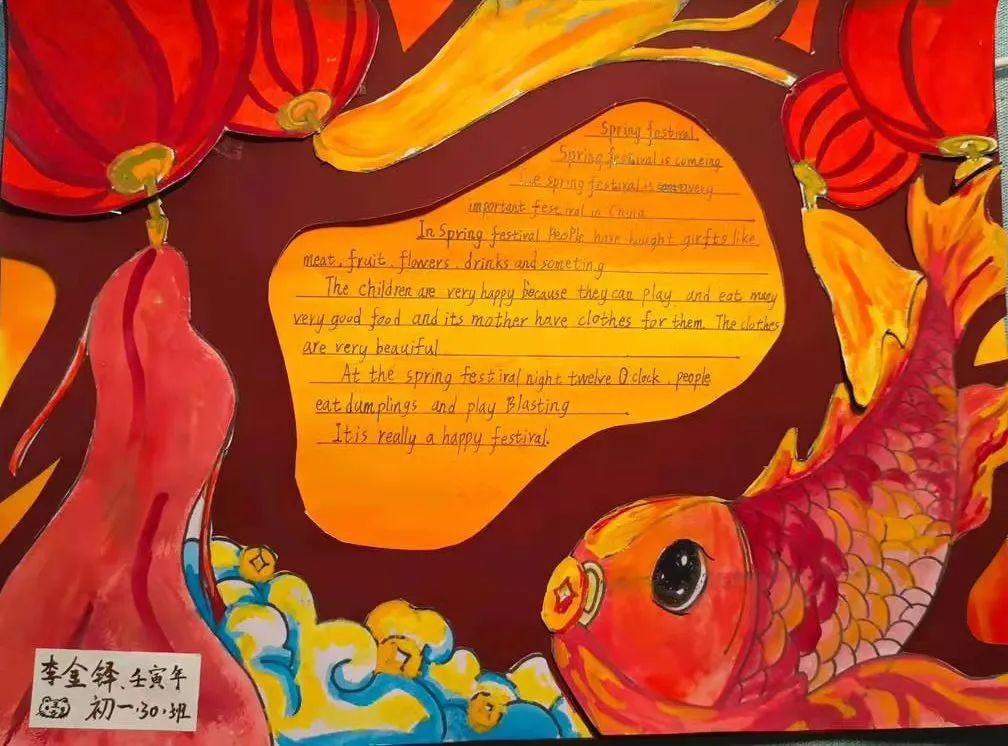 Spring festival
Spring festival is comeing
The spring festival is very
important festival in China
In Spring festival People have bought girfts like
meat, fruit, flowers, drinks and someting
The children are very happy because they can play, and eat many
very good food and its mother have clothes for them. The clothes
are very beauiful
At the spring festival night twelve O'clock, people
eat dumplings and play Blasting
It is really a happy festival.
李金铎、壬寅年
初一·30·班